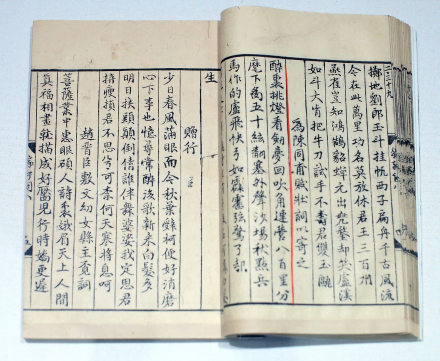 擲地劉郎玉斗挂帆西子扁舟千古風流
今在此萬里功名莫放休君王三百州
燕雀豈知鴻鵠貂蟬元出兜鍪却笑瀘溪
如斗大肯把牛刀試手不壽君雙玉甌
為陳同甫賦壯詞以寄之
醉裏挑燈看劍夢回吹角連營八百里分
麾下炙五十絃翻塞外聲沙場秋點兵
馬作的盧飛快弓如霹靂弦驚
生
贈行
少日春風滿眼而今秋葉辭柯便好消磨
心下事也憶尋常醉後歌新來白髮多
明日扶頭顛倒倩誰伴舞婆娑我定思君
拚瘦損君不思兮可奈何天寒將息呵
趙晉臣敷文幼女縣主覓詞
菩薩叢中惠眼碩人詩裏蛾眉天上人間
真福相畫就描成好靨兒行時嬌更遲